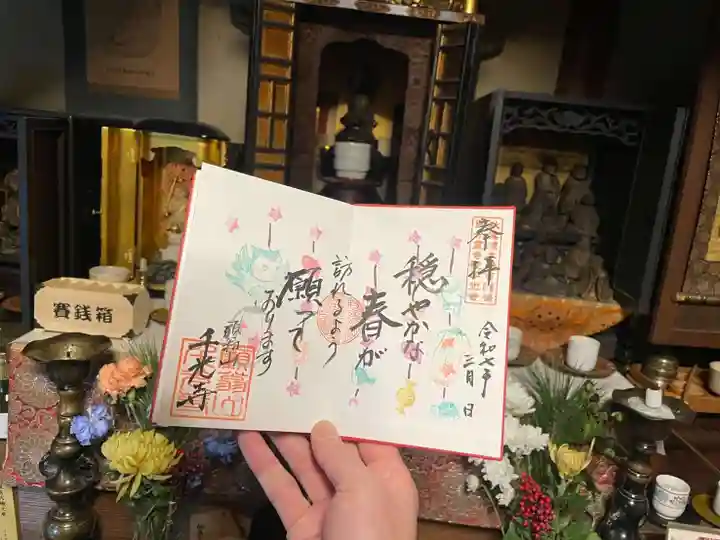 奉拝
穏やかな
春が
訪れるよう
願って
おります
千光寺
令和七年
三月 日
賽銭箱